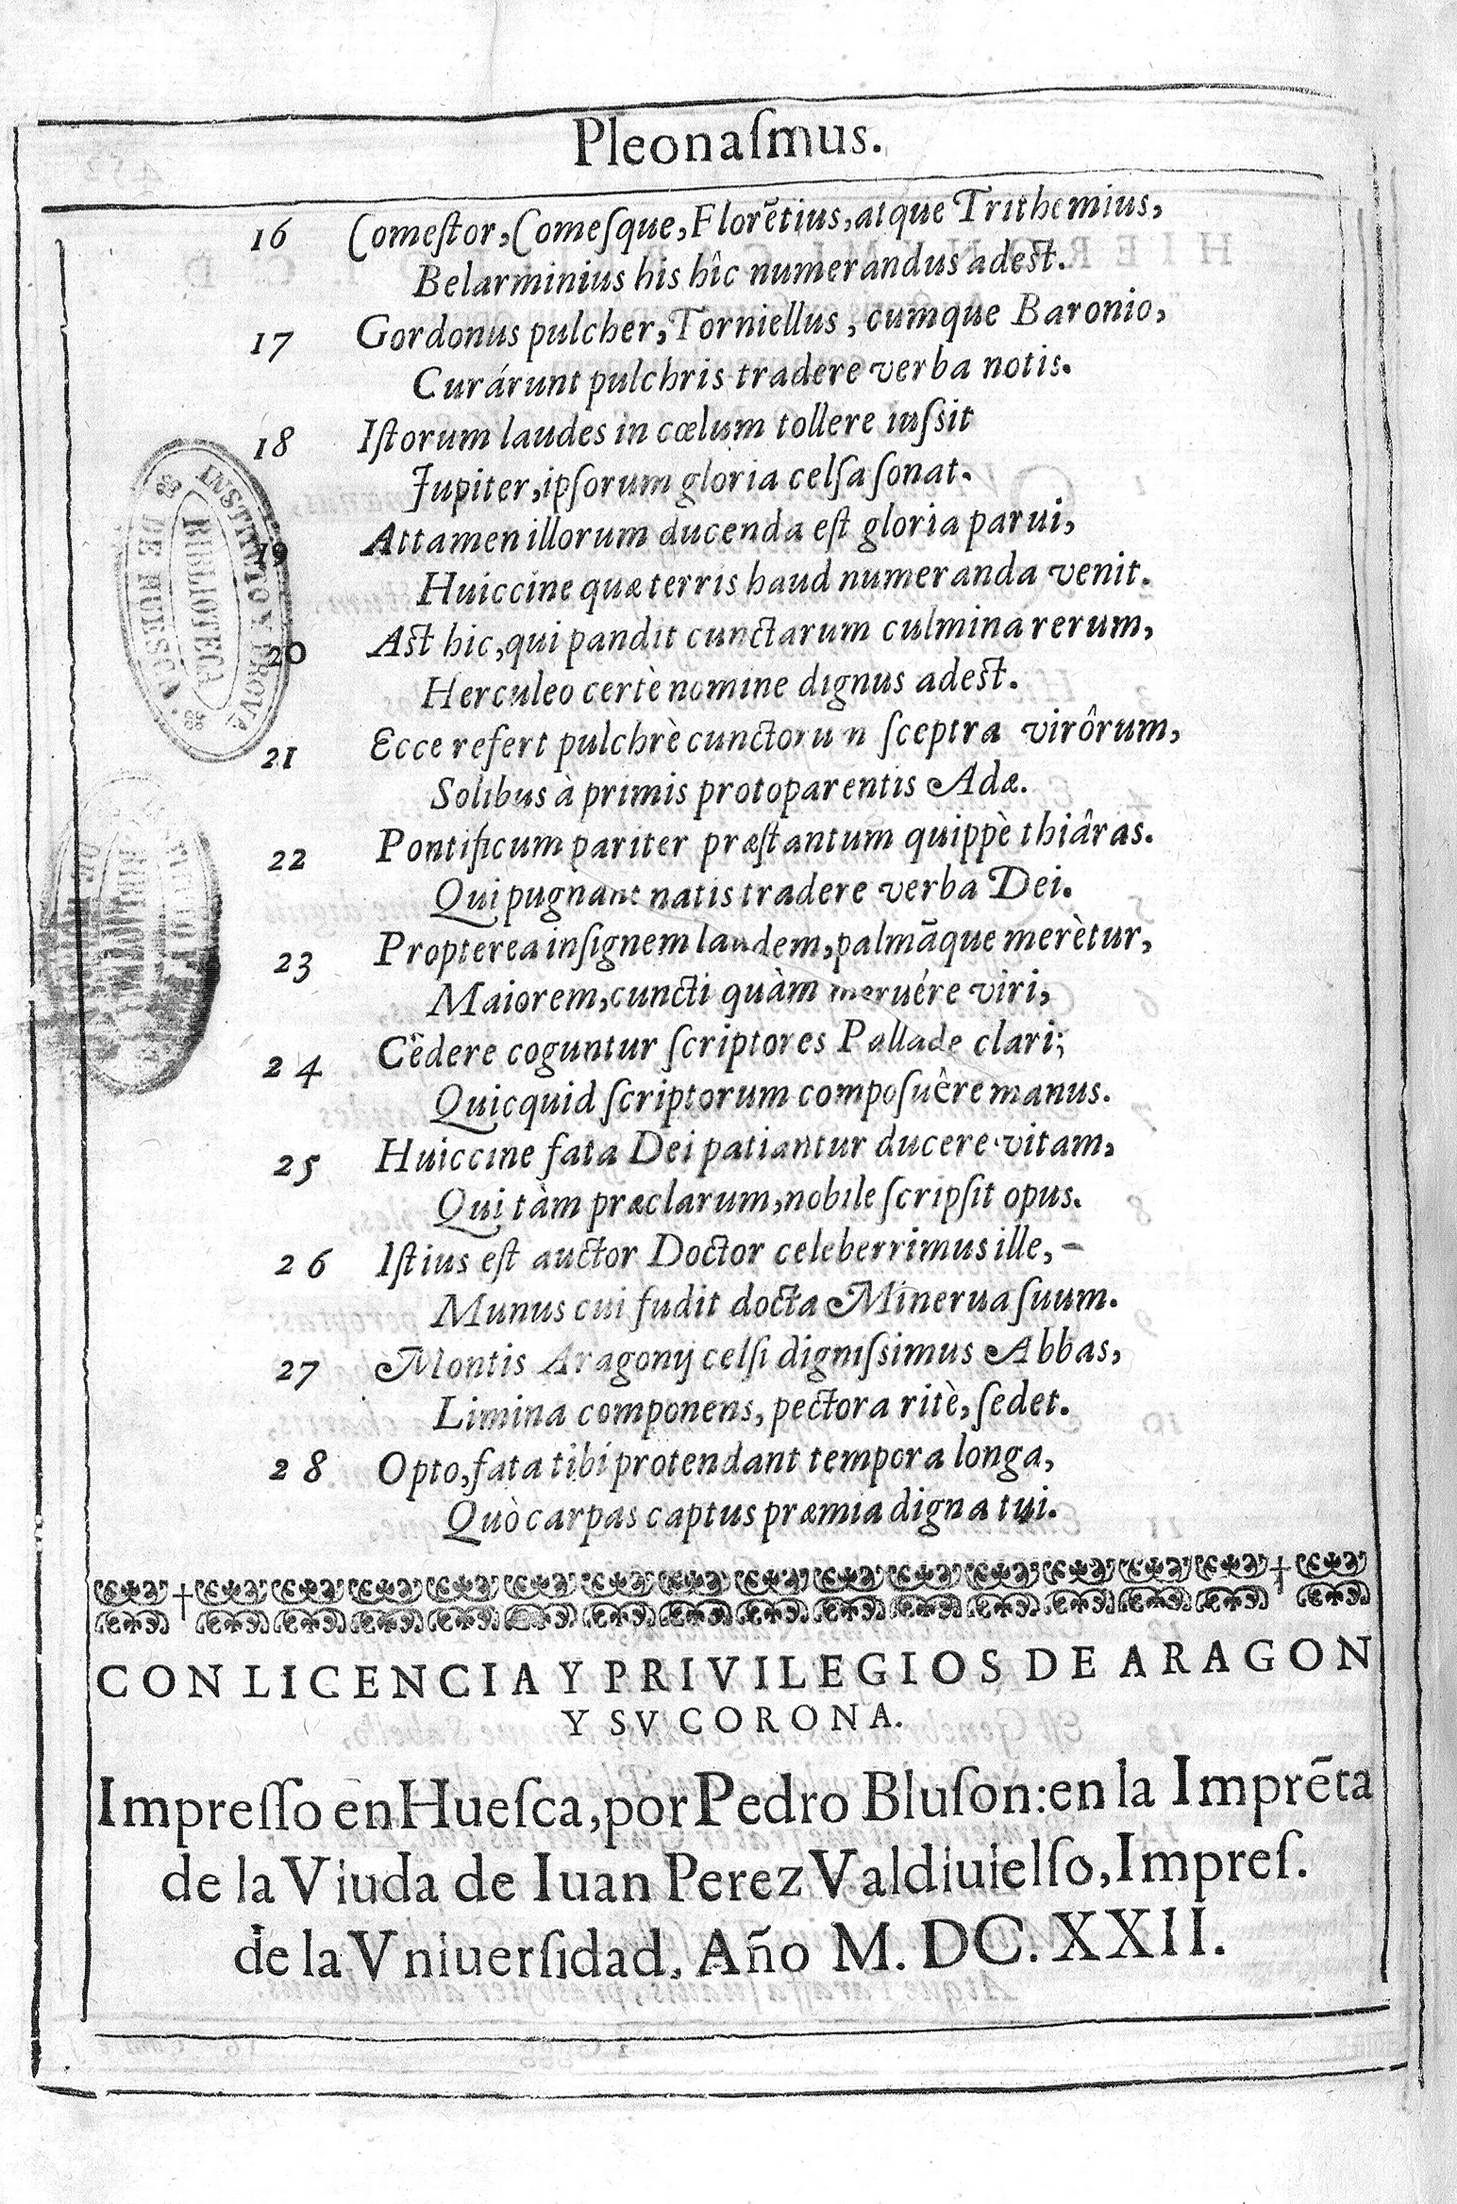 Pleonaſmus.
16 Comeſtor, Comeſque, Florẽtius, atque Trithemius,
Belarminius his hîc numerandus adest.
17 Gordonus pulcher, Torniellus, cumque Baronio,
Curárunt pulchris tradere verba notis.
18 Iſtorum laudes in cœlum tollere iuſsit
Jupiter, ipſorum gloria celſa ſonat.
19 Attamen illorum ducenda eſt gloria parui,
Huiccine quæ terris haud numeranda venit.
20 Ast hic, qui pandit cunctarum culmina rerum,
Herculeo certè nomine dignus adest.
21 Ecce refert pulchrè cunctorum ſceptra virôrum,
Solibus à primis protoparentis Adæ.
22 Pontificum pariter præſtantum quippè thiâras.
Qui pugnant natis tradere verba Dei.
23 Propterea inſignem laudem, palmãque merètur,
Maiorem, cuncti quàm meruére viri,
24 Cêdere coguntur ſcriptores Pallade clari;
Quicquid ſcriptorum compoſuêre manus.
25 Huiccine fata Dei patiantur ducere vitam,
Qui tàm præclarum, nobile ſcripſit opus.
26 Iſtius eſt auctor Doctor celeberrimus ille,
Munus cui fudit docta Minerua ſuum.
27 Montis Aragonij celſi digniſsimus Abbas,
Limina componens, pectora ritè, ſedet.
28 Opto, fata tibi protendant tempora longa,
Quò carpas captus præmia digna tui.
CON LICENCIA Y PRIVILEGIOS DE ARAGON
Y SV CORONA.
Impreſſo en Hueſca, por Pedro Bluſon: en la Imprẽta
de la Viuda de Iuan Perez Valdiuielſo, Impreſ.
de la Vniuerſidad, Año M. DC. XXII.
INSTITUTO Y PROVAL
DE HUESCA
BIBLIOTECA